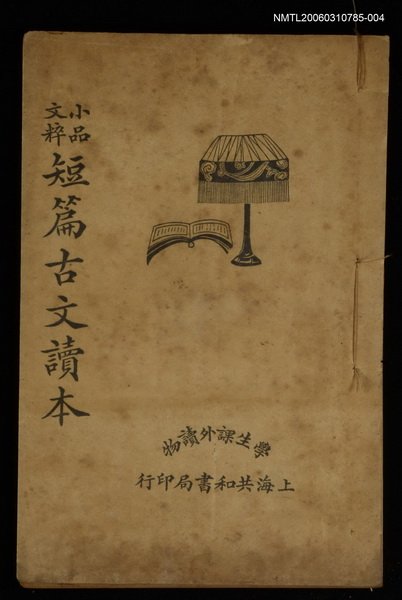 NMTL20060310785-004
小品
文粹
短篇古文讀本
學生課外讀物
上海共和書局印行